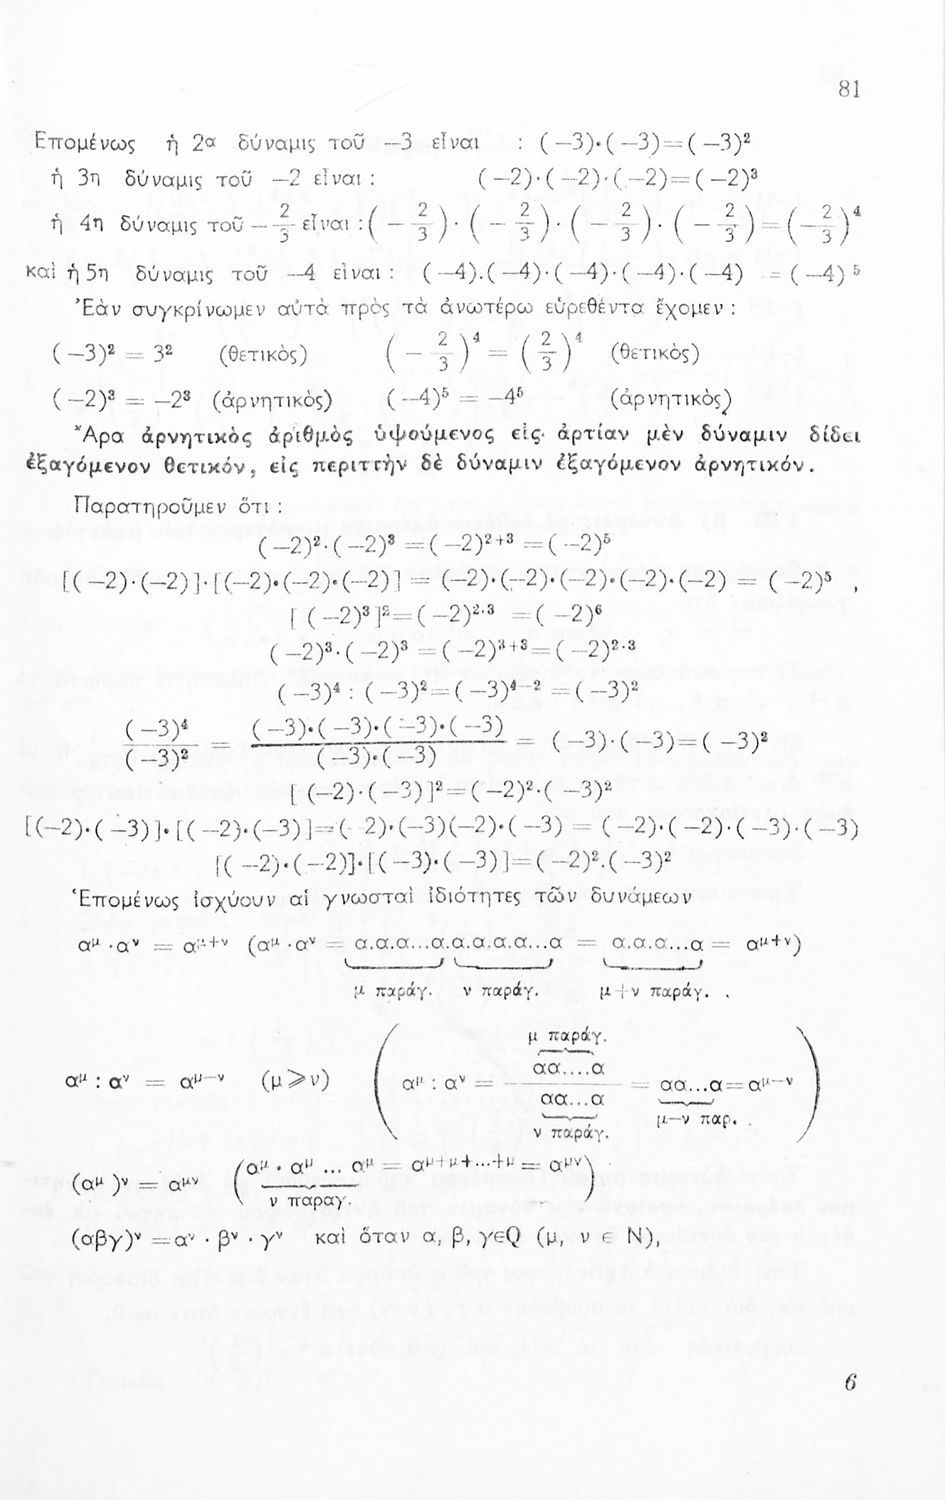 81
Ἑπομένως ἡ 2α δύναμις τοῦ —3 εἶναι : (—3)·(—3)=(—3)²
ἡ 3η δύναμις τοῦ —2 εἶναι : (—2)·(—2)·(—2)=(—2)³
ἡ 4η δύναμις τοῦ —2/3 εἶναι : (—2/3)·(—2/3)·(—2/3)·(—2/3)=(—2/3)⁴
καὶ ἡ 5η δύναμις τοῦ —4 εἶναι : (—4).(—4)·(—4)·(—4)·(—4) = (—4)⁵
Ἐὰν συγκρίνωμεν αὐτὰ πρὸς τὰ ἀνωτέρω εὑρεθέντα ἔχομεν :
(—3)² = 3² (θετικὸς) (—2/3)⁴ = (2/3)⁴ (θετικὸς)
(—2)³ = —2³ (ἀρνητικὸς) (—4)⁵ = —4⁵ (ἀρνητικὸς)
Ἄρα ἀρνητικὸς ἀριθμὸς ὑψούμενος εἰς ἀρτίαν μὲν δύναμιν δίδει
ἐξαγόμενον θετικόν, εἰς περιττὴν δὲ δύναμιν ἐξαγόμενον ἀρνητικόν.
Παρατηροῦμεν ὅτι :
(—2)²·(—2)³ =(—2)²⁺³ =(—2)⁵
[(—2)·(—2)]·[(—2)·(—2)·(—2)] = (—2)·(—2)·(—2)·(—2)·(—2) = (—2)⁵ ,
[(—2)³]²=(—2)²·³ =(—2)⁶
(—2)³·(—2)³ =(—2)³⁺³=(—2)²·³
(—3)⁴ : (—3)²=(—3)⁴⁻² =(—3)²
(—3)⁴/(—3)² = (—3)·(—3)·(—3)·(—3)/(—3)·(—3) (—3)·(—3)=(—3)²
[(—2)·(—3)]²=(—2)²·(—3)²
[(—2)·(—3)]·[(—2)·(—3)]=(—2)·(—3)(—2)·(—3) = (—2)·(—2)·(—3)·(—3)
[(—2)·(—2)]·[(—3)·(—3)]=(—2)².(—3)²
Ἑπομένως ἰσχύουν αἱ γνωσταὶ ἰδιότητες τῶν δυνάμεων
αᵘ · αᵛ = αᵘ⁺ᵛ (αᵘ · αᵛ = α.α.α...α.α.α.α.α...α = α.α.α...α = αᵘ⁺ᵛ)
μ παράγ. ν παράγ. μ+ν παράγ. .
μ παράγ.
αᵘ : αᵛ = αᵘ⁻ᵛ (μ⩾ν) (αᵘ : αᵛ = αα....α/αα...α = αα...α=αᵘ⁻ᵛ)
ν παράγ. μ—ν παρ. .
(αᵘ)ᵛ = αᵘᵛ (αᵘ · αᵘ ... αᵘ = αᵘ⁺ᵘ⁺···⁺ᵘ = αᵘᵛ)
ν παραγ.
(αβγ)ᵛ =αᵛ · βᵛ · γᵛ καὶ ὅταν α, β, γ∈Q (μ, ν ∈ N),
6